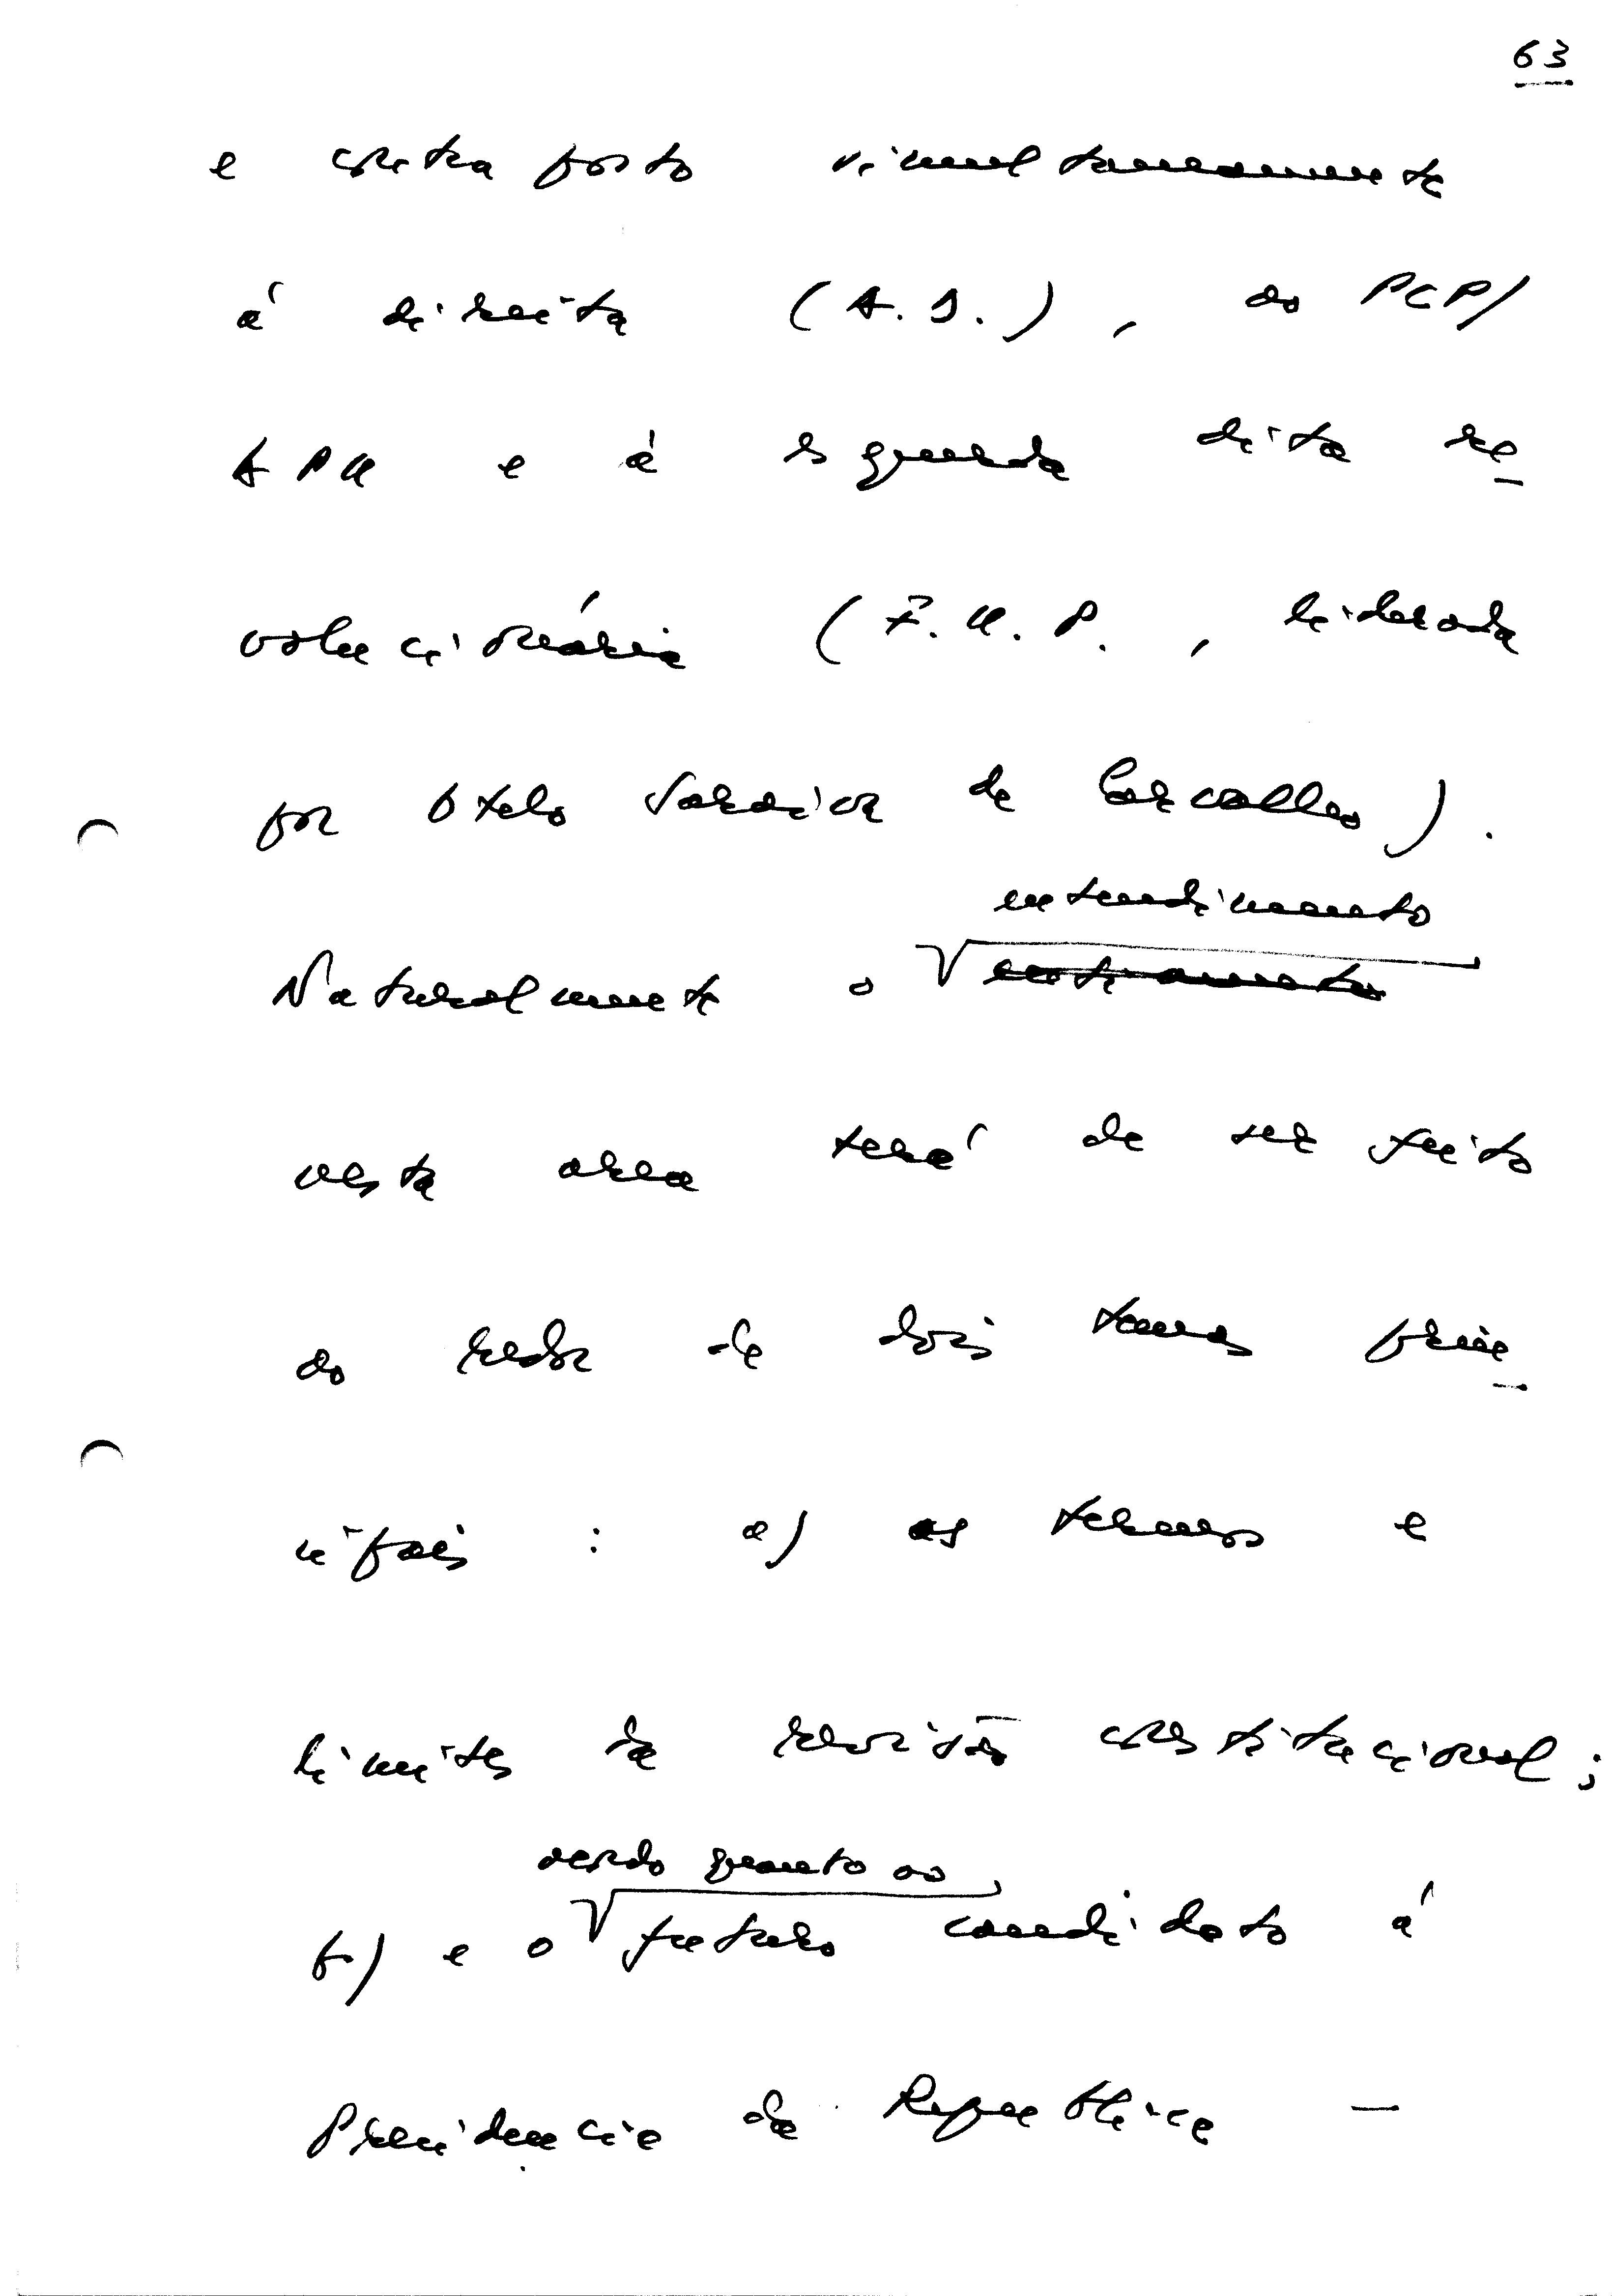 63
e contraposto simultaneamente
á direita (A.D.), ao PCP/
APU e á esquerda dita re-
volucionária (F.U.P., liderada
por Otelo Saraiva de Carvalho).
entendimento
Naturalmente o
nesta area terá de ser feito
ao redor de dois temas prin-
cipais : a) os termos e
limites da revisão constitucional;
acordo quanto ao
b) e o futuro candidato á
Presidencia da Republica —